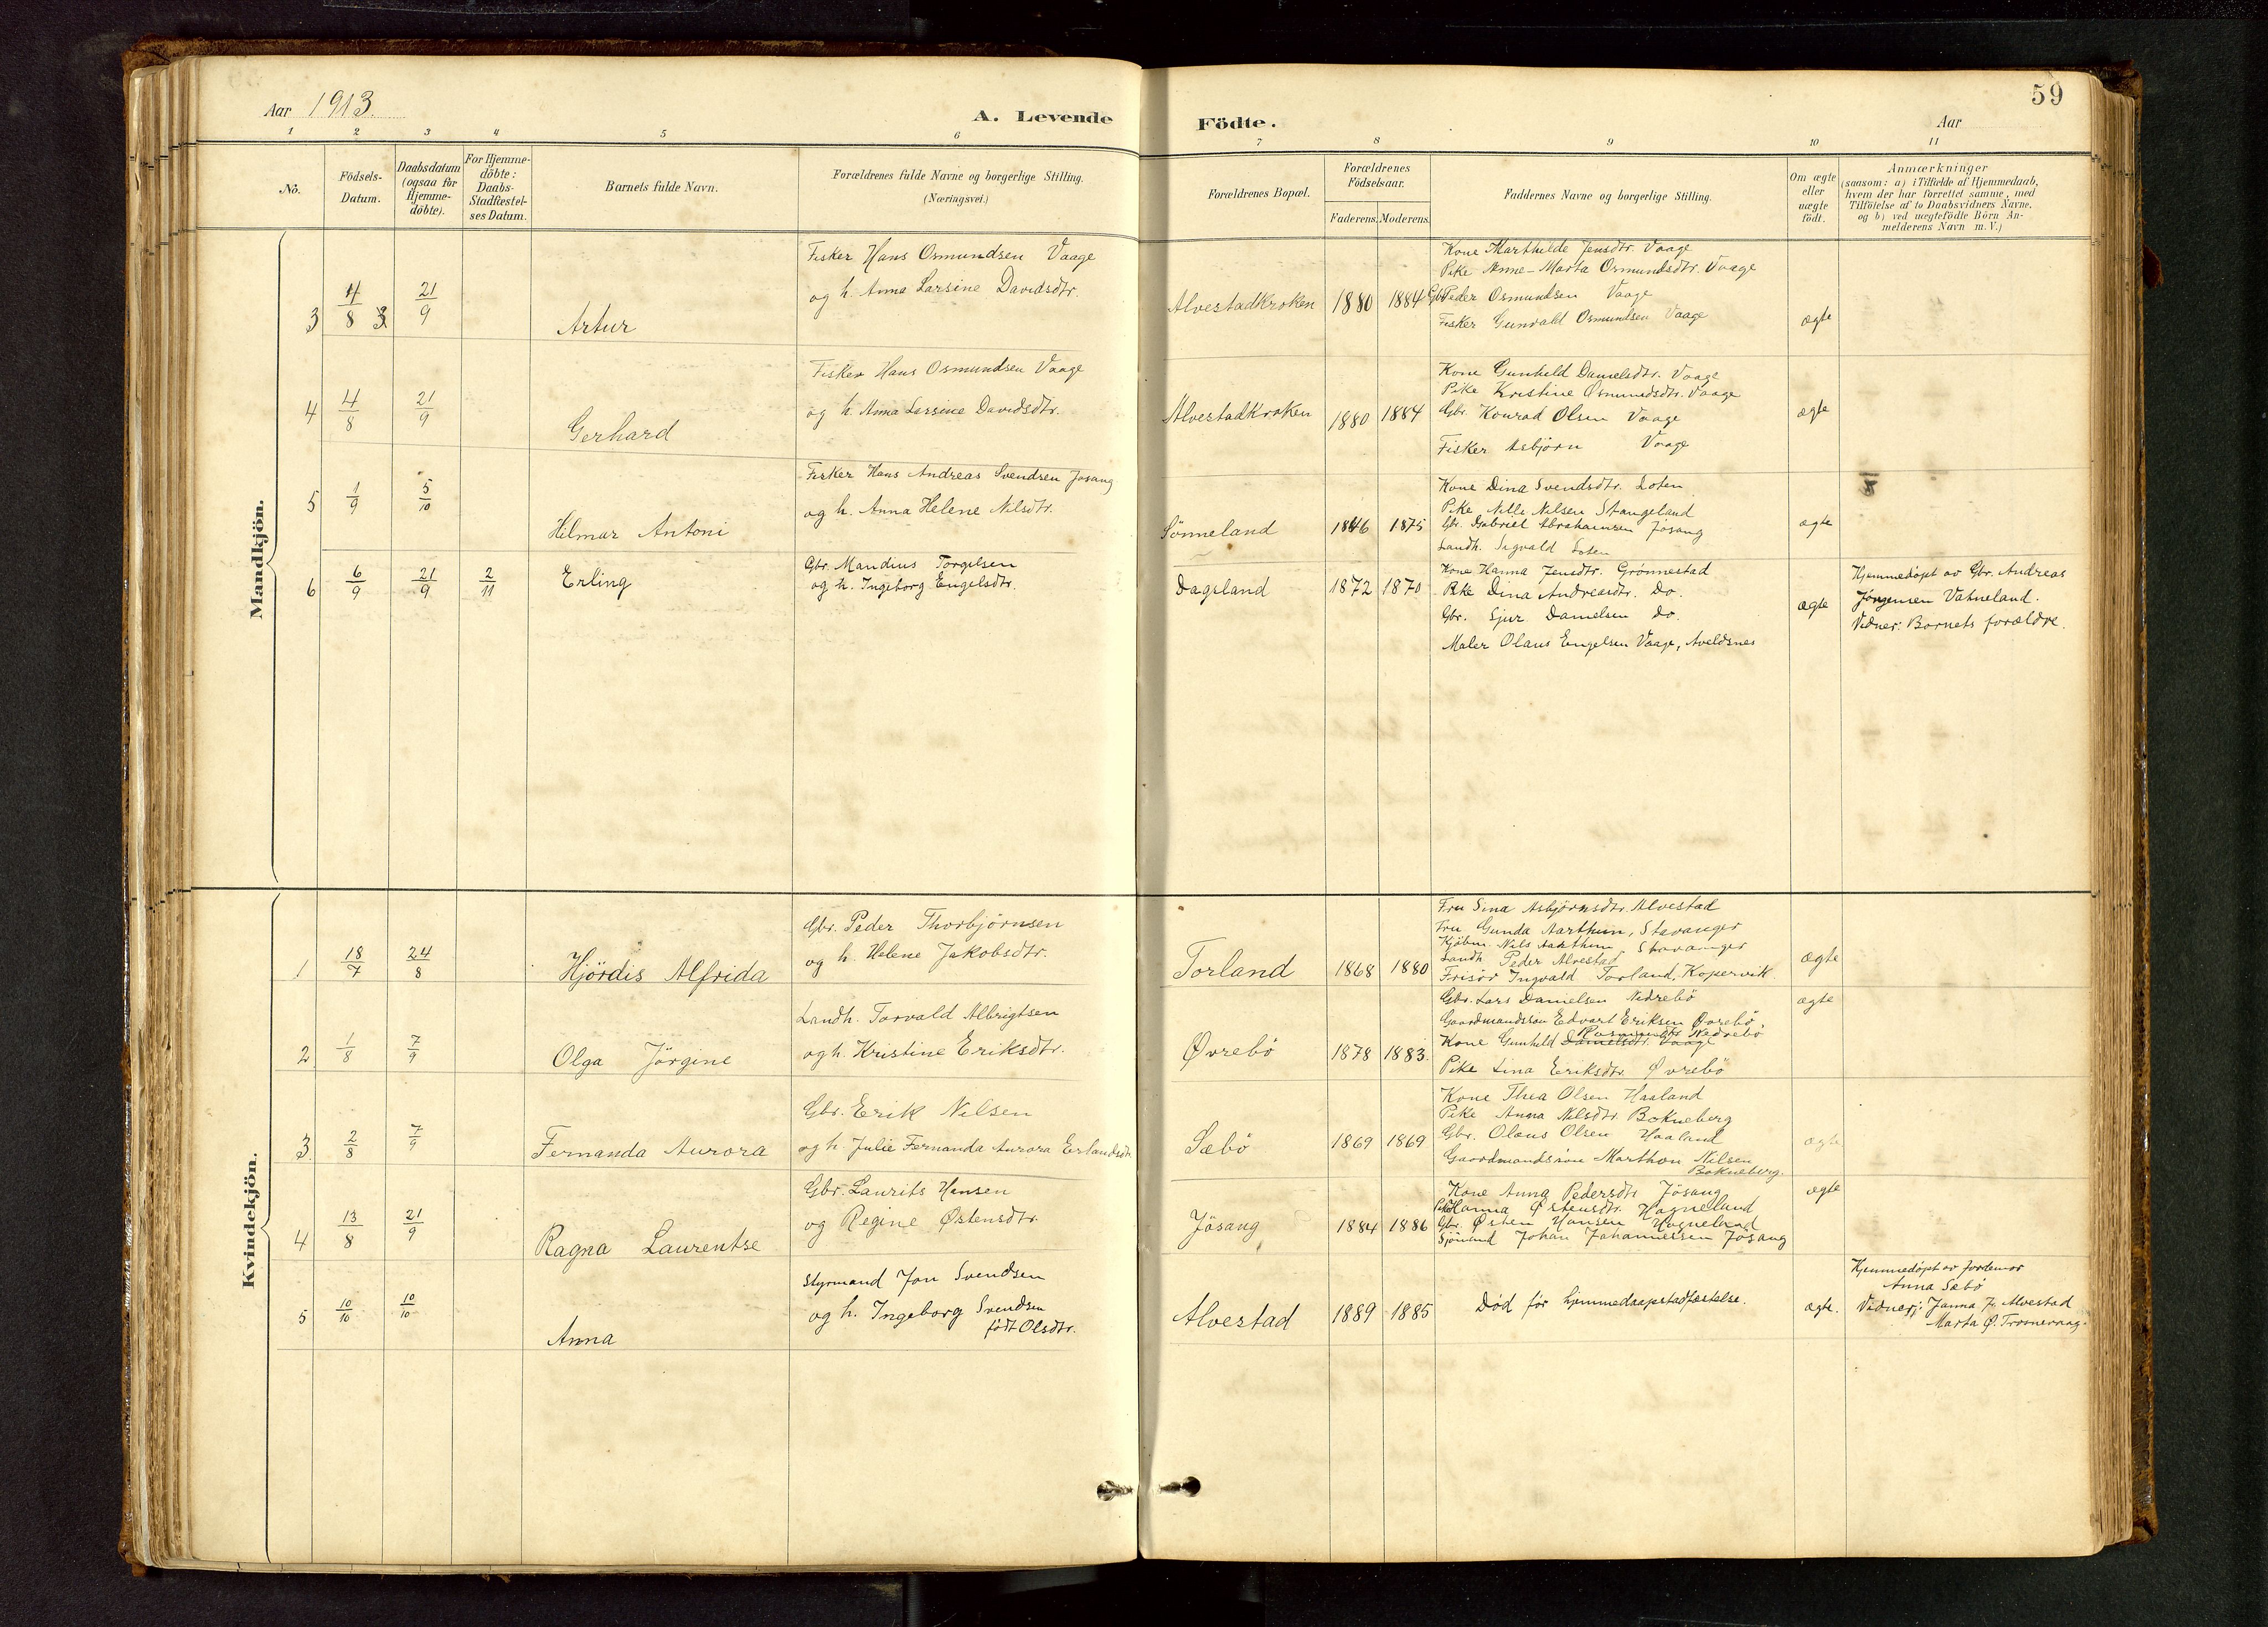 Aar 1913.
A. Levende
Födte.
Aar
59
1 2 3 4 5 6 7 8 9 10 11
No.
Födsels-
Datum.
Daabsdatum
(ogsaa for
Hjemme-
döbte).
For Hjemme-
döbte:
Daabs-
Stadfæstel-
ses Datum.
Barnets fulde Navn.
Forældrenes fulde Navne og borgerlige Stilling.
(Næringsvei.)
Forældrenes Bopæl.
Forældrenes
Födselsaar.
Faderens. Moderens.
Faddernes Navne og borgerlige Stilling.
Om ægte
eller
uægte
födt.
Anmærkninger
(saasom: a) i Tilfælde af Hjemmedaab,
hvem der har forrettet samme, med
Tilföielse af to Daabsvidners Navne,
og b) ved uægtefödte Börn An-
melderens Navn m. V.)
Mandkjön.
3 4/8 21/9 Artur
Fisker Hans Osmundsen Vaage
og h. Anna Larsine Davidsdtr.
Alvestadkroken 1880 1884
Kone Marthilde Jensdtr. Vaage
Pike Anne-Marta Osmundsdtr. Vaage
Gbr. Peder Osmundsen Vaage
Fisker Gunvald Osmundsen Vaage
ægte
4 4/8 21/9 Gerhard
Fisker Hans Osmundsen Vaage
og h. Anna Larsine Davidsdtr.
Alvestadkroken 1880 1884
Kone Gunhild Danielsdtr. Vaage
Pike Kristine Osmundsdtr. Vaage
Gbr. Konrad Olsen Vaage
Fisker Asbjörn Vaage
ægte
5 1/9 5/10 Hilmar Antoni
Fisker Hans Andreas Svendsen Jösang
og h. Anna Helene Nilsdtr.
Sönneland 1846 1875
Kone Dina Svendsdtr. Loten
Pike Nille Nilsen Stangeland
Gbr. Gabriel Abrahamsen Jösang
Landh. Sigvald Loten
ægte
6 6/9 21/9 2/11 Erling
Gbr. Mandius Torgilsen
og h. Ingeborg Engelsdtr.
Dagsland 1872 1870
Kone Hanna Jensdtr. Grönnestad
Pike Dina Andreasdtr. Do.
Gbr. Sjur Danielsen do.
Maler Olaus Engelsen Vaage, Aveldsnes
ægte
Hjemmedöpt av Gbr. Andreas
Jörgensen Vatneland.
Vidner: Barnets forældre.
Kvindekjön.
1 18/7 24/8 Hjördis Alfrida
Gbr. Peder Thorbjörnsen
og h. Helene Jakobsdtr.
Torland 1868 1880
Fru Sina Asbjörnsdtr. Alvestad
Fru Gunda Aarthun, Stavanger
Kjöbm. Nils Aarthun, Stavanger
Landh. Peder Alvestad
Frisör Ingvald Torland, Kopervik.
ægte
2 1/8 7/9 Olga Jörgine
Landh. Torvald Albrigtsen
og h. Kristine Eriksdtr.
Øvrebö 1878 1883.
Gbr. Lars Danielsen Nedrebö
Gaardmandssön Edvart Eriksen Øvrebö
Rasmusdtr. Nedrebö
Kone Gunhild Danielsdtr. Vaage
Pike Lina Eriksdtr. Øvrebö
ægte
3 2/8 7/9 Fernanda Aurora
Gbr. Erik Nilsen
og h. Julie Fernanda Aurora Erlandsdtr.
Sæbö 1869 1869
Kone Thea Olsen Haaland
Pike Anna Nilsdtr. Bokneberg
Gbr. Olaus Olsen Haaland
Gaardmandssön Marthon Nilsen
Bokneberg.
ægte
4 13/8 21/9 Ragna Laurentse
Gbr. Laurits Hansen
og Regine Østensdtr.
Jösang 1884 1886
Kone Anna Pedersdtr. Jösang
Pike Hanna Østensdtr. Hogneland
Gbr. Østen Hansen Hogneland
Sjömand Johan Johannessen Jösang
ægte
5 10/10 10/10 Anna
Styrmand Jon Svendsen
og h. Ingeborg Svendsen
födt Olsdtr.
Alvestad 1889 1885
Död för hjemmedaapstadfæstelse.
ægte.
Hjemmedöpt av Jordemor
Anna Sæbö
Vidner: Janna J. Alvestad
Marta Ø.